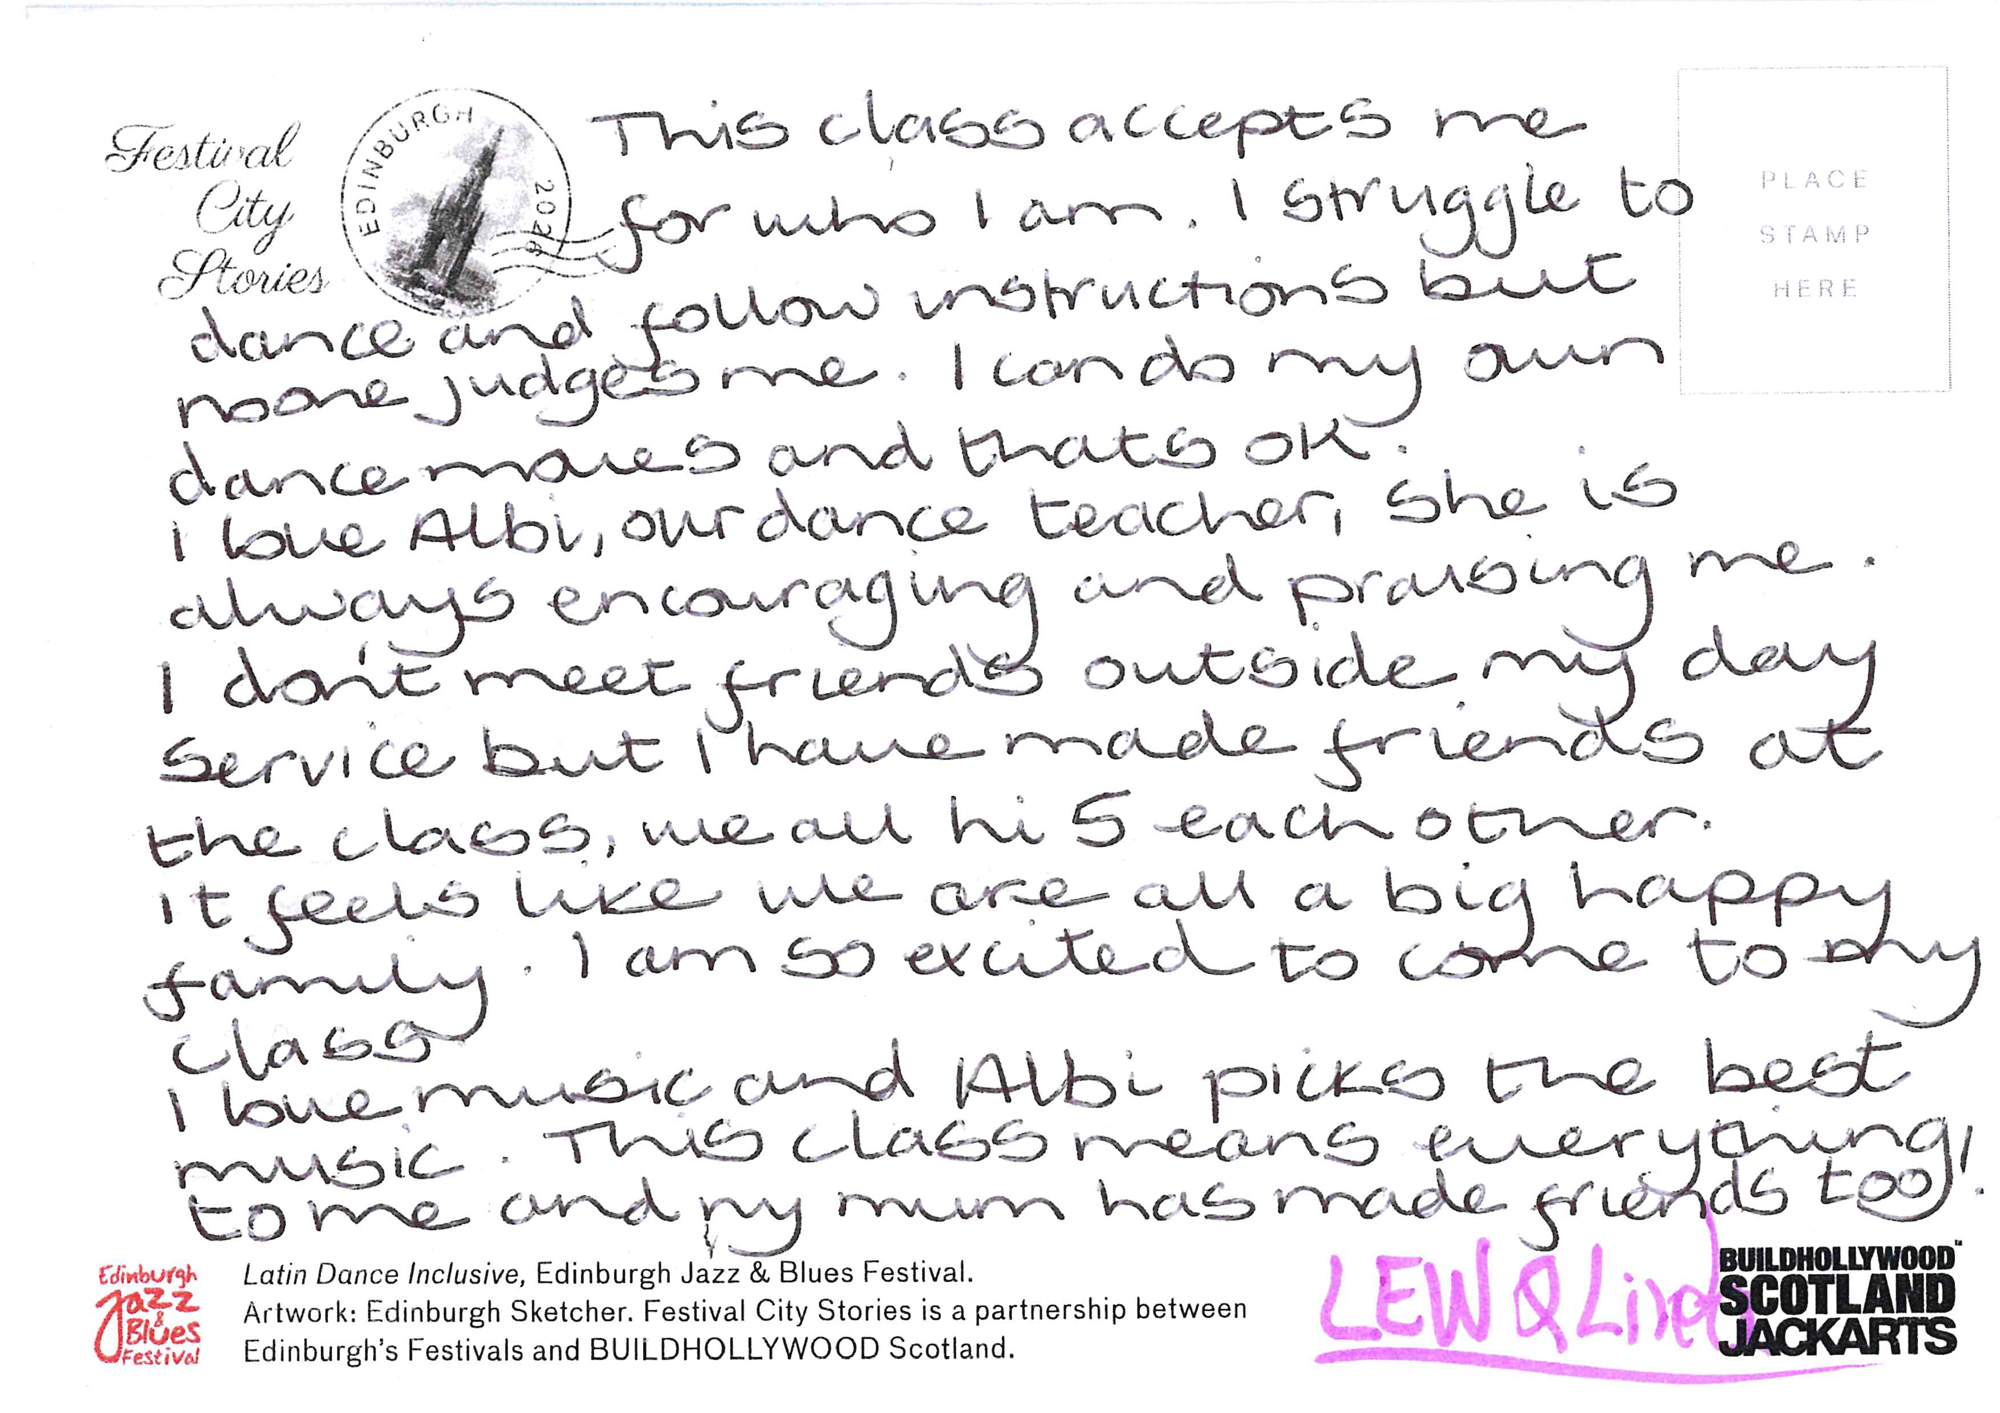 Festival
City
Stories
EDINBURGH 2026
PLACE
STAMP
HERE
This class accepts me
for who I am. I struggle to
dance and follow instructions but
noone judges me. I can do my own
dance moves and thats ok.
I love Albi, our dance teacher, she is
always encouraging and praising me.
I don't meet friends outside my day
service but I have made friends at
the class, we all hi 5 each other.
It feels like we are all a big happy
family. I am so excited to come to my
class
I love music and Albi picks the best
music. This class means everything,
to me and my mum has made friends too!
Edinburgh
Jazz
&
Blues
Festival
Latin Dance Inclusive, Edinburgh Jazz & Blues Festival.
Artwork: Edinburgh Sketcher. Festival City Stories is a partnership between
Edinburgh's Festivals and BUILDHOLLYWOOD Scotland.
LEW &
BUILDHOLLYWOOD™
SCOTLAND
JACKARTS